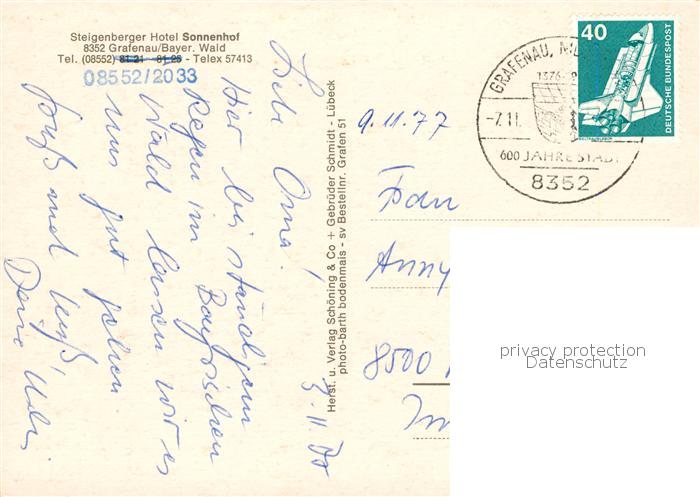 Steigenberger Hotel Sonnenhof
8352 Grafenau/Bayer. Wald
Tel. (08552) 81 21 - 81 25 - Telex 57413
08552/2033
Liebe Oma!
Hier bei ständigem
Regen im Bayrischen
Wald lassen wir es
uns gut gehen
Gruß und Kuß!
Herst. u. Verlag Schöning & Co + Gebrüder Schmidt - Lübeck
photo-barth bodenmais - sv Bestellnr. Grafen 51
9.11.77
Frau
Anny
8500
GRAFENAU,
1376-
-7.11.
600 JAHRE STADT
8352
40
DEUTSCHE BUNDESPOST
privacy protection
Datenschutz